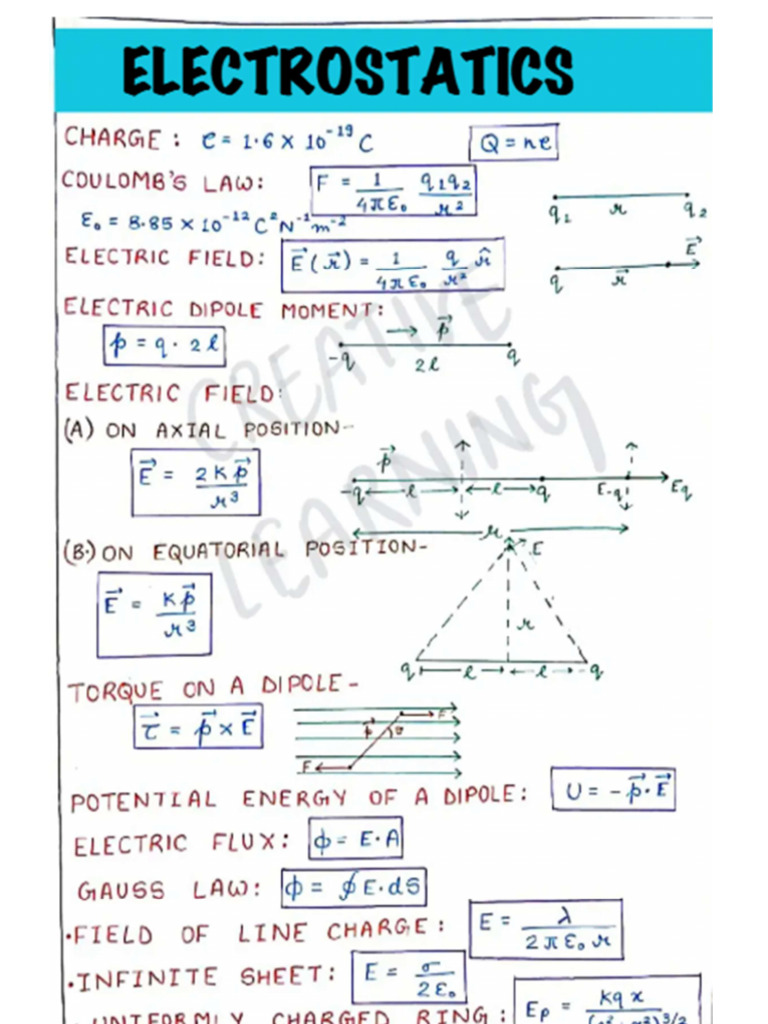 ELECTROSTATICS
CHARGE: e = 1.6 × 10⁻¹⁹ C Q = ne
COULOMB'S LAW: F = 1/4πε₀ q₁q₂/r²
q₁ r q₂
ε₀ = 8.85 × 10⁻¹² C²N⁻¹m⁻²
ELECTRIC FIELD: E⃗(r⃗) = 1/4πε₀ q/r² r̂
E⃗
q r⃗
ELECTRIC DIPOLE MOMENT:
p = q · 2l
p⃗
-q 2l q
ELECTRIC FIELD:
(A) ON AXIAL POSITION-
E⃗ = 2Kp⃗/r³
p⃗
-q l l q E-q Eq
r
(B.) ON EQUATORIAL POSITION-
E
E⃗ = Kp⃗/r³
r
q l l -q
TORQUE ON A DIPOLE-
τ⃗ = p⃗ × E⃗
F
p⃗ θ
F
POTENTIAL ENERGY OF A DIPOLE: U = -p⃗·E⃗
ELECTRIC FLUX: ϕ = E·A
GAUSS LAW: ϕ = ∮E.dS
·FIELD OF LINE CHARGE: E = λ/2πε₀r
·INFINITE SHEET: E = σ/2ε₀
·UNIFORMLY CHARGED RING: Ep = kqx
CREATIVE
LEARNING